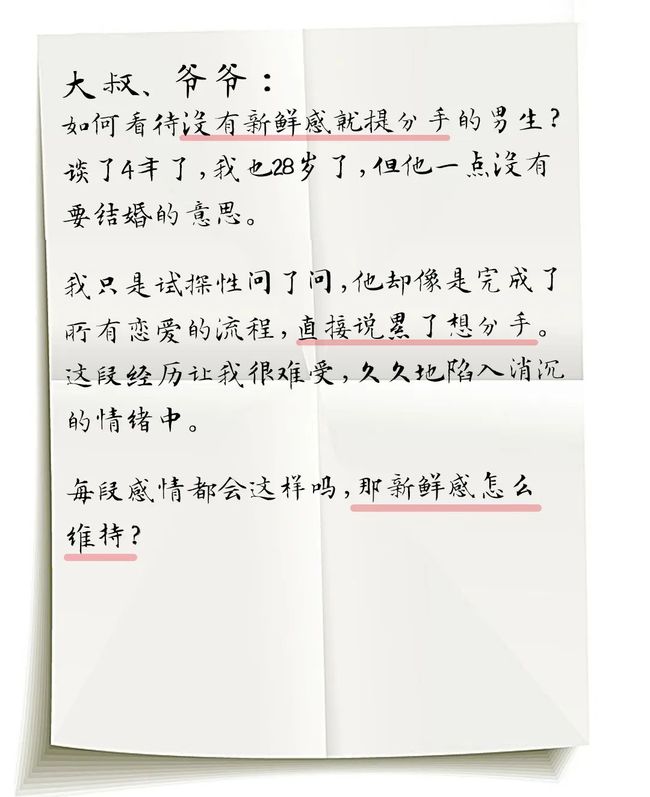 大叔、爷爷：
如何看待没有新鲜感就提分手的男生？
谈了4年了，我也28岁了，但他一点没有
要结婚的意思。
我只是试探性问了问，他却像是完成了
所有恋爱的流程，直接说累了想分手。
这段经历让我很难受，久久地陷入消沉
的情绪中。
每段感情都会这样吗，那新鲜感怎么
维持？